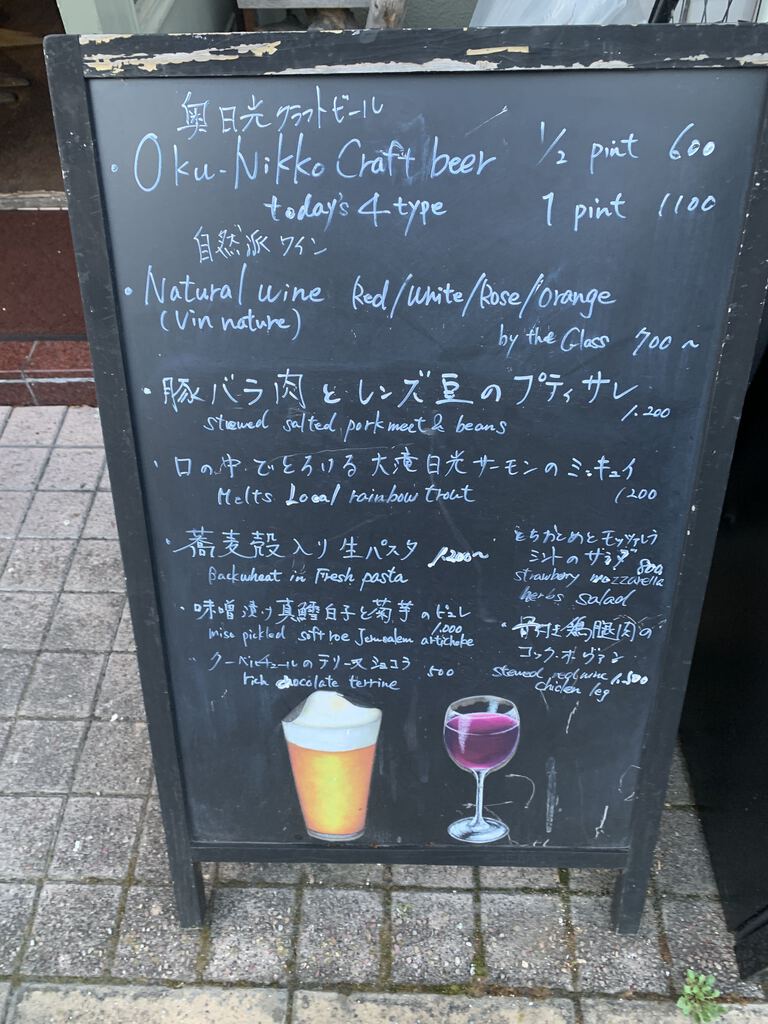 奥日光クラフトビール
・Oku-Nikko Craft beer 1/2 pint 600
today's 4 type 1 pint 1100
自然派ワイン
・Natural wine Red/White/Rose/Orange
(Vin nature)
by the Glass 700~
・豚バラ肉とレンズ豆のプティサレ 1.200
stewed salted pork meet & beans
・口の中でとろける大滝日光サーモンのミ・キュイ
Melts Local rainbow trout 1200
・蕎麦殻入り生パスタ 1.200~
Backwheat in Fresh pasta
・味噌漬け真鱈白子と菊芋のピュレ
miso pickled soft roe Jerusalem artichoke 1.000
・クーベルチュールのテリーヌショコラ 500
rich chocolate terrine
・とちおとめとモッツァレラ
ミントのサラダ 800
strawberry mozzarella
herbs salad
・骨付き鶏腿肉の
コック・オ・ヴァン
stewed red wine 1.500
chicken leg